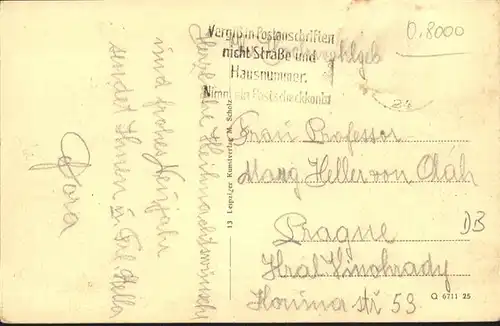 Herzliche Weihnachtswünsche
und frohes Neujahr
sendet Ihnen u. Frl. Hella
Dora
Vergiß in Postanschriften
nicht Straße und
Hausnummer.
Nimm ein Postscheckkonto
0.8000
Frau Professor
Marg Heller von Oláh
Prague
Kral Vinohrady
Kouřimá str 53
DB
13 Leipziger Kunstverlag M. Scholz
Q 6711 25